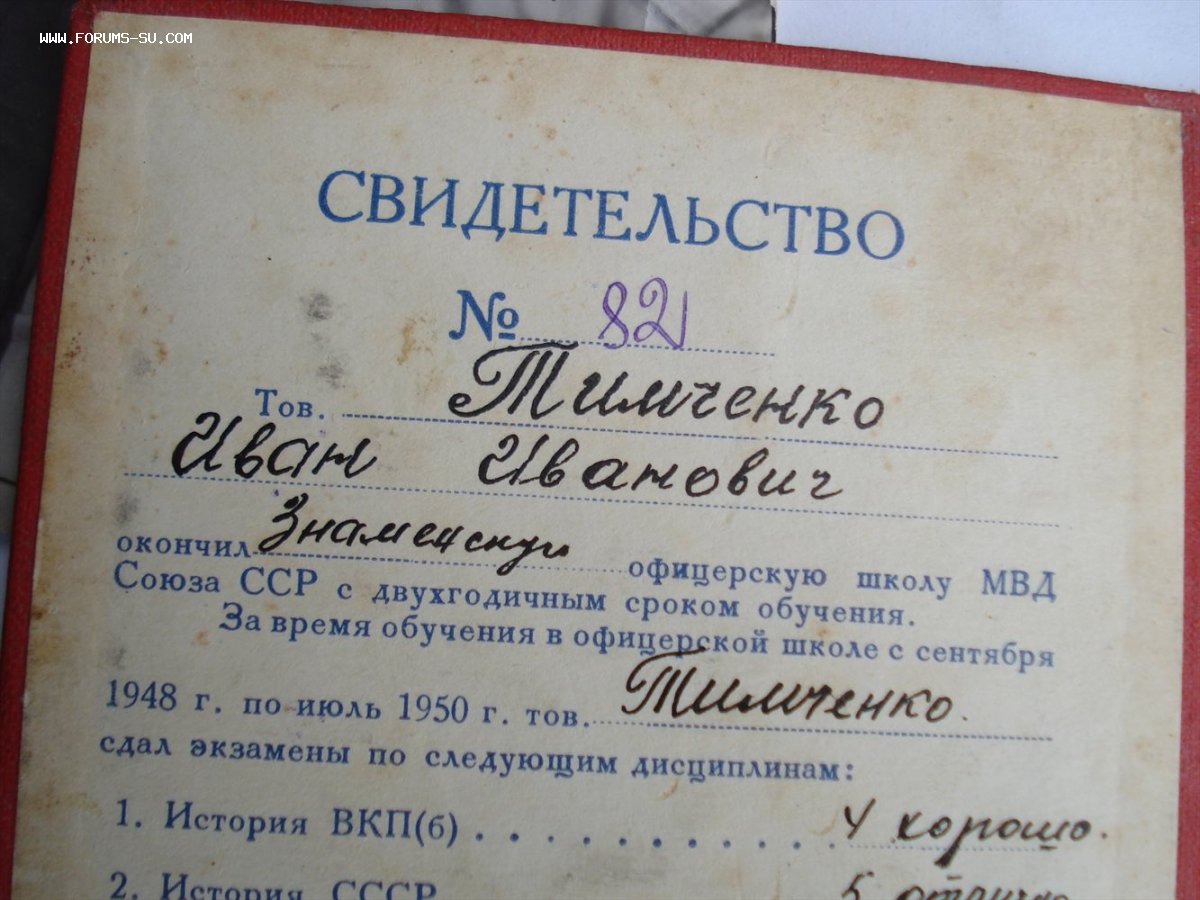 WWW.FORUMS-SU.COM
СВИДЕТЕЛЬСТВО
№ 821
Тов. Тимченко
Иван Иванович
окончил Знаменскую офицерскую школу МВД
Союза ССР с двухгодичным сроком обучения.
За время обучения в офицерской школе с сентября
1948 г. по июль 1950 г. тов. Тимченко.
сдал экзамены по следующим дисциплинам:
1. История ВКП(б) . . . . . . . . . . . . 4 хорошо.
2. История СССР 5 отлично